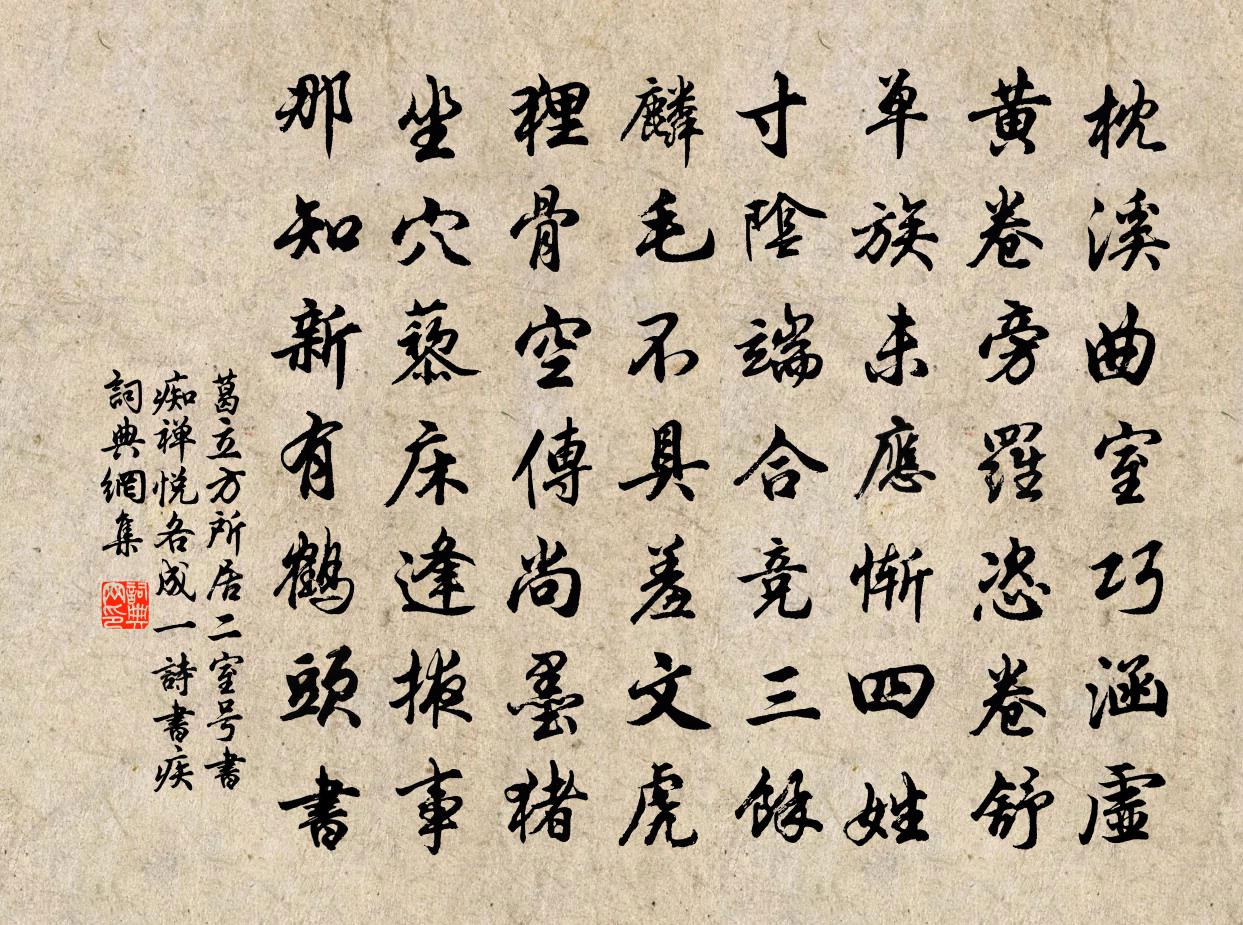 枕溪曲室巧涵虛
黃卷旁羅恣卷舒
單族未應慚四姓
寸陰端合竞三餘
麟毛不具羞文虎
狸骨空傳尚墨猪
坐穴藜床逢掖事
那知新有鶴頭書
葛立方所居二室号書
痴禅悦各成一詩書疾
詞典網集
詞典网印